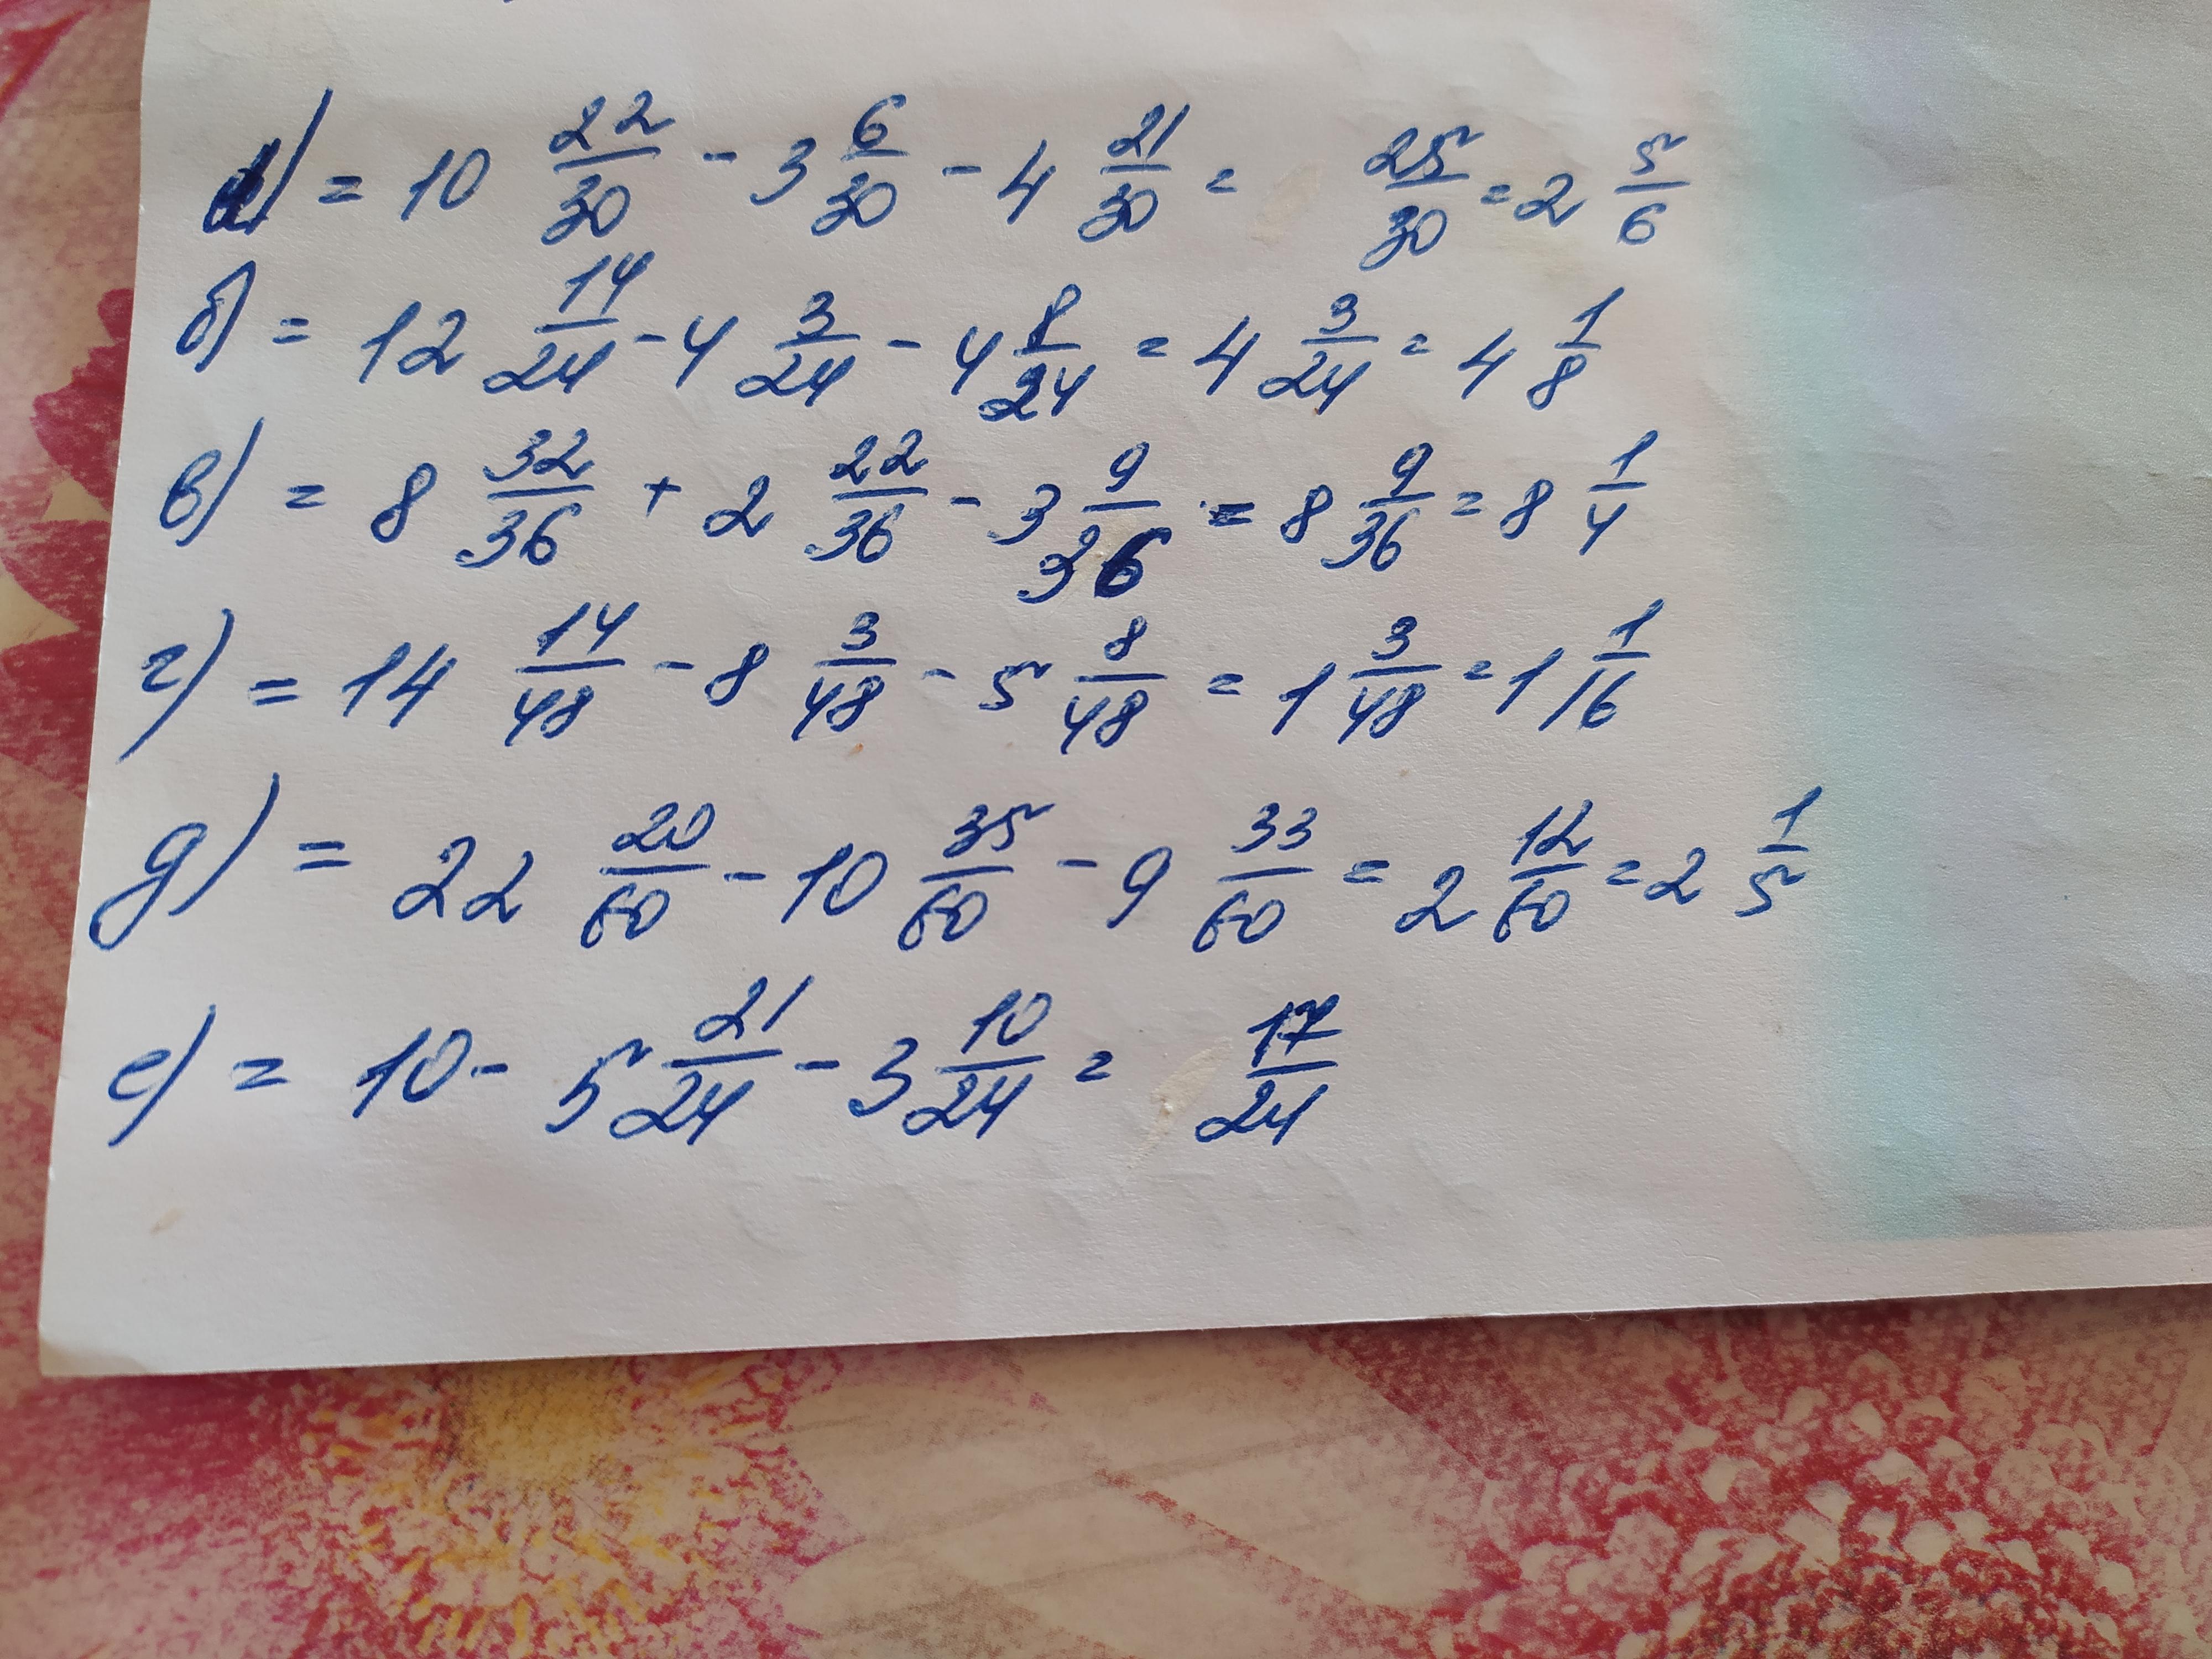 а) = 10 22/30 - 3 6/30 - 4 21/30 = 25/30 = 2 5/6
б) = 12 14/24 - 4 3/24 - 4 8/24 = 4 3/24 = 4 1/8
в) = 8 32/36 + 2 22/36 - 3 9/36 = 8 9/36 = 8 1/4
г) = 14 14/48 - 8 3/48 - 5 8/48 = 1 3/48 = 1 1/16
д) = 22 20/60 - 10 35/60 - 9 33/60 = 2 12/60 = 2 1/5
е) = 10 - 5 21/24 - 3 10/24 = 17/24